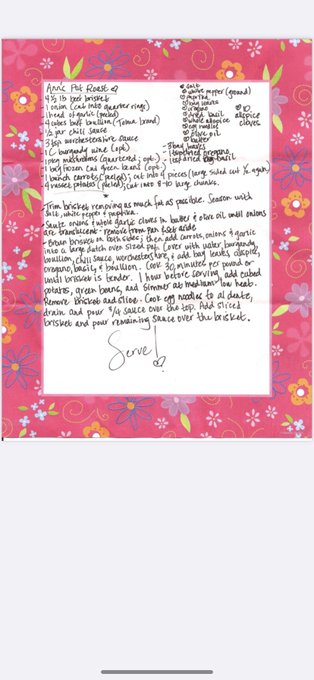 Ann's Pot Roast
4 1/2 lb beef brisket
1 onion (cut into quarter rings)
1 head of garlic (peeled)
4 cubes beef bouillon (Tome brand)
1/2 jar chili sauce
3 tbsp worchestershire sauce
1 C burgundy wine (opt)
10 mushrooms (quartered; opt.)
1 bag frozen cut green beans (opt.)
1 bunch carrots (peeled); cut into 4 pieces (large sided cut 1/2 again)
4 russet potatoes (peeled); cut into 8-10 large chunks.
salt
white pepper (ground)
paprika
bay leaves
oregano
dried basil
whole allspice
egg noodles
olive oil
butter
10 allspice cloves
3 bay leaves
1 tsp dried oregano
1 tsp dried basil
- Trim brisket removing as much fat as possible. Season with
salt, white pepper & paprika.
- Saute onions & whole garlic cloves in butter & olive oil until onions
are translucent - remove from pan & set aside
- Brown brisket on both sides; then add carrots, onions & garlic
into a large dutch oven sized pot. Cover with water, burgundy,
bouillon, chili sauce, worchestershire, and add bay leaves, allspice,
oregano, basil, & bouillon. Cook 30 minutes per pound or
until brisket is tender. 1 hour before serving, add cubed
potatoes, green beans, and simmer at medium low heat.
Remove brisket and slice. Cook egg noodles to al dente,
drain and pour 3/4 sauce over the top. Add sliced
brisket and pour remaining sauce over the brisket.
Serve!